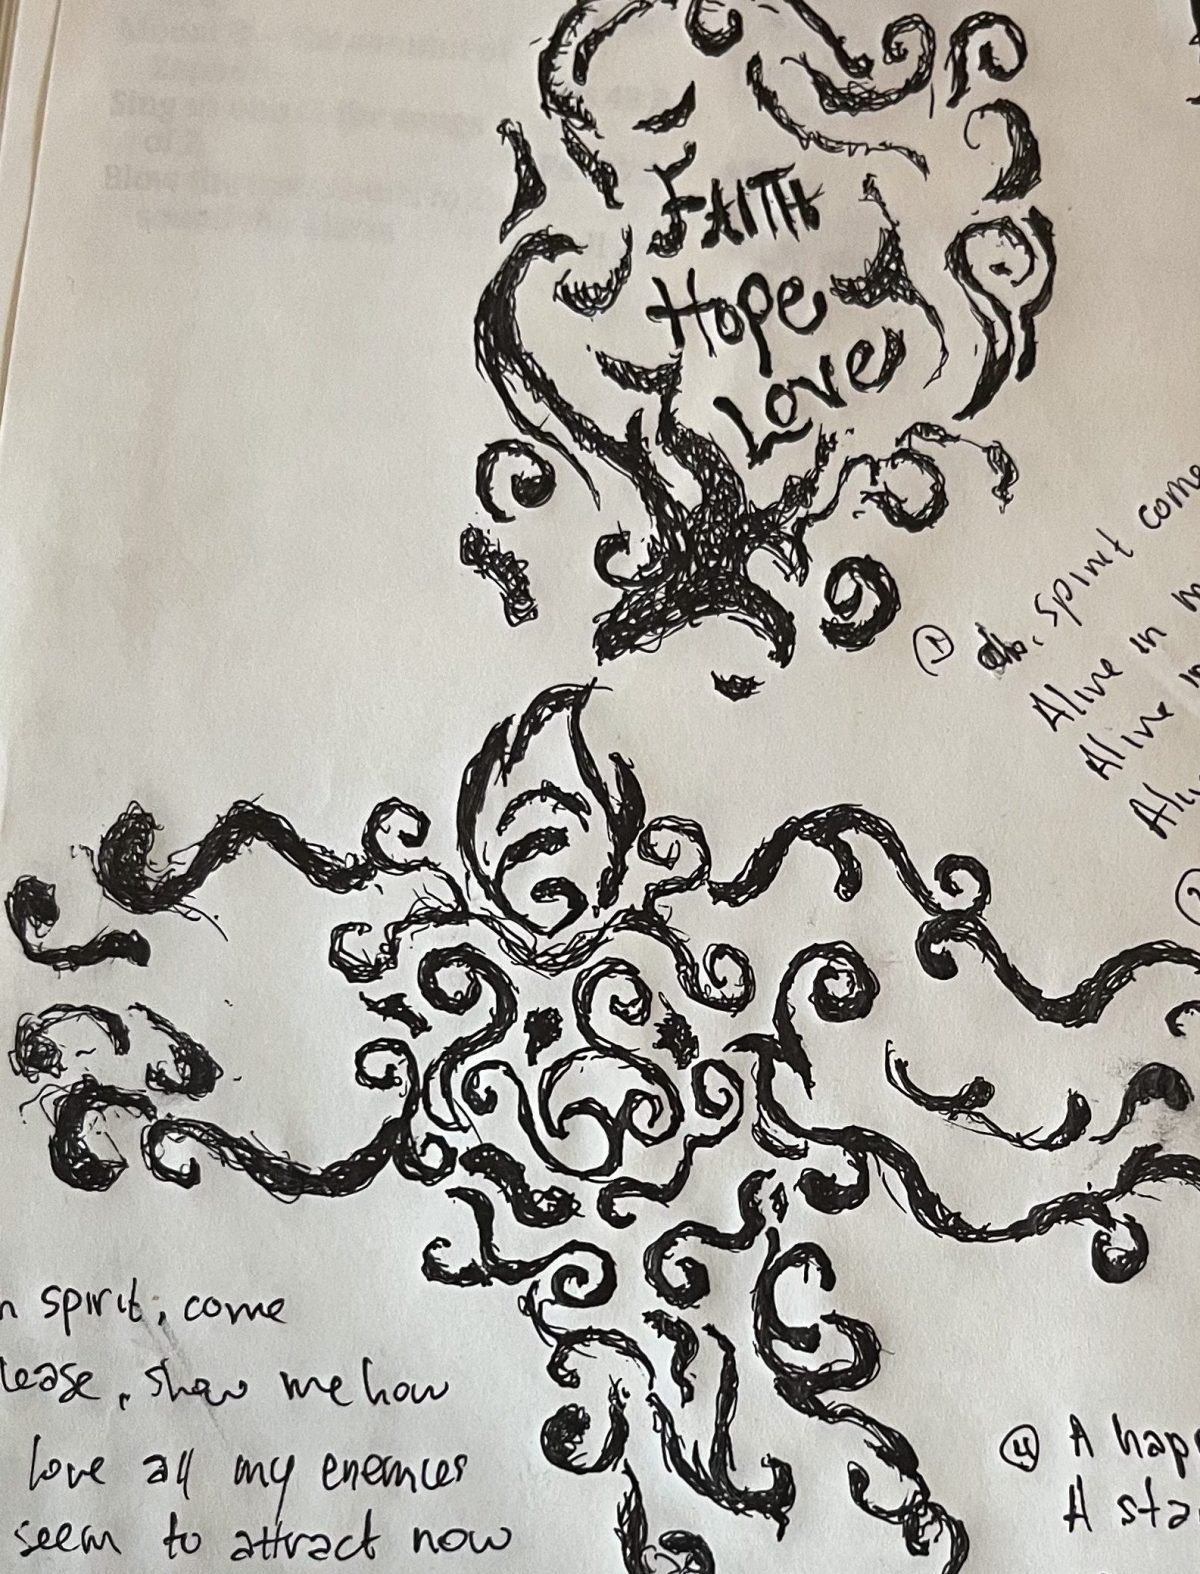 FAITH
Hope
Love
① oh. spirit come
Alive in
Alive in
④ A hap
A sta
spirit, come
lease, show me how
love all my enemies
seem to attract now